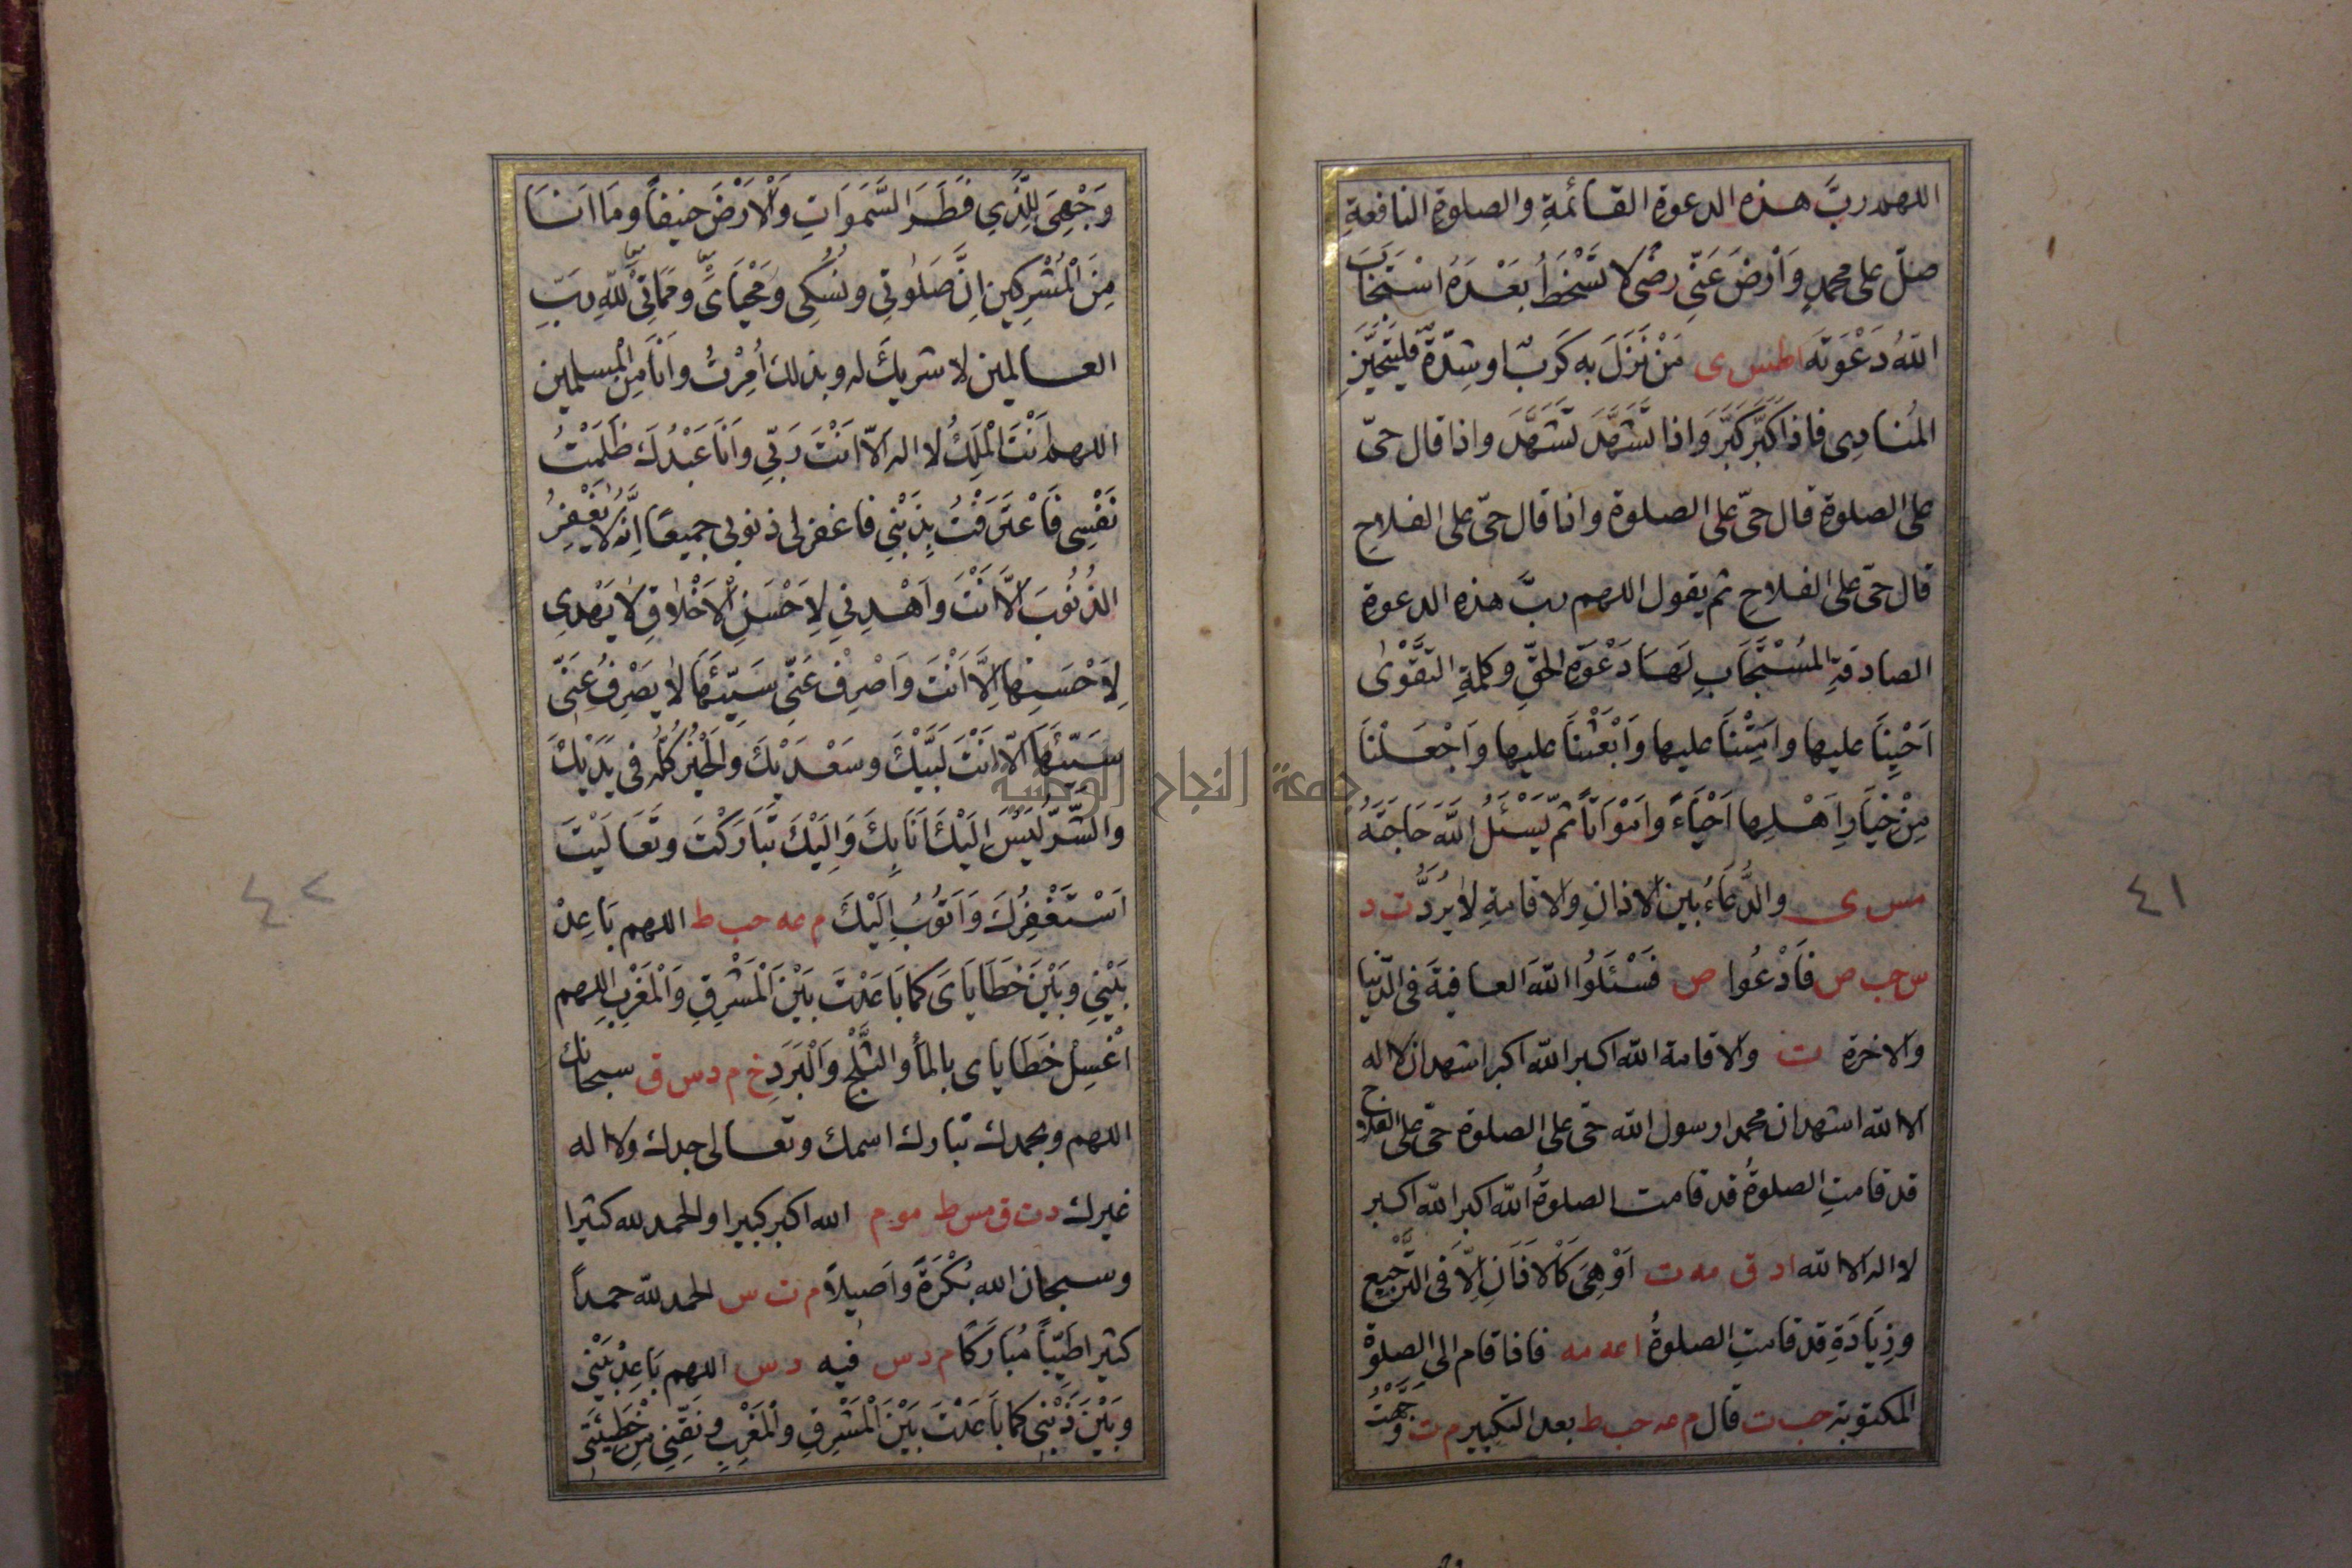 اللهم ربَّ هذه الدعوة القائمةِ والصلوة النافعةِ
صلّ على محمدٍ وَارْضَ عَنّي رضًى لا تَسْخَطُ بَعْدَهُ اسْتَجَابَ
اللّهُ دَعْوَتَه اطس ى مَنْ نَزَلَ به كَرَبٌ او شِدّةٌ فليَتَحَيَّنِ
المُنادِى فاذا كَبَّرَ كَبَّرَ وَاذا تَشَهَّدَ تَشَهَّدَ واذا قال حىّ
على الصلوة قال حىّ على الصلوة واذا قال حىّ على الفلاحِ
قال حىّ على الفلاح ثم يقول اللهم ربَّ هذه الدعوة
الصادقةِ المُسْتَجَابِ لَهَا دَعْوَةِ الحقّ وكلمةِ التَّقْوٰى
اَحْيِنَا عليها وامِتْنَا عليها وَابْعَثْنَا عليها وَاجْعَلْنَا
مِنْ خِيَارِ اَهْلِها اَحْيَاءً وامْوَاتًا ثمّ يَسْئَلُ اللّهَ حَاجَتَهُ
مس ى والدُّعَاءُ بين الاذانِ والاقامةِ لا يُرَدُّ ت د
س حب ص فَادْعُوا ص فَسْئَلُوا اللّهَ العافيةَ فى الدّنيا
والاخرة ت والاقامة اللّه اكبر اللّه اكبر اشهد ان لا اله
الا اللّه اشهد ان محمدا رسول اللّه حىّ على الصلوة حىّ على الفلاح
قد قامتِ الصلوةُ قد قامت الصلوةُ اللّه اكبر اللّه اكبر
لا اله الا اللّه اد ق مه ت اَوْهِىَ كَالاذَانِ اِلّا فى التَّرْجِيعِ
وزِيَادَةِ قد قامتِ الصلوةُ اعه مه فاذا قام الى الصلوة
المكتوبة حب ت قال م عه حب ط بعد التكبير م ت وَجَّهْتُ
٤١
وَجْهِىَ لِلَّذِي فَطَرَ السَّمَوَاتِ وَالْاَرْضَ حنيفًا وما اَنَا
مِنَ الْمُشْرِكِينَ اِنَّ صَلٰوتِي ونُسُكِى وَمَحْيَاىَ ومَمَاتِى لِلّهِ رَبِّ
العالمين لا شريكَ له وبذلك اُمِرْتُ وانَا مِنَ المسلمين
اللهم اَنْتَ الْمَلِكُ لا اله اِلّا اَنْتَ رَبّي وَاَنَا عَبْدُكَ ظَلَمْتُ
نَفْسِى فَاعْتَرَفْتُ بِذَنْبِي فاغفر لى ذنوبى جميعًا اِنّه لا يَغْفِرُ
الذُّنُوبَ اِلّا اَنْتَ وَاهْدِني لِاَحْسَنِ الْاَخْلَاقِ لا يَهْدِى
لِاَحْسَنِها اِلَّا اَنْتَ وَاصْرِفْ عَنّي سَيِّئَهَا لا يَصْرِفُ عَنّى
سَيِّئَهَا اِلّا اَنْتَ لَبَّيْكَ وسَعْدَيْكَ والخَيْرُ كُلُّه فى يَدَيْكَ
والشَّرُّ لَيْسَ اِلَيْكَ اَنَا بِكَ وَاِلَيْكَ تَبَارَكْتَ وتَعَالَيْتَ
اَسْتَغْفِرُكَ وَاَتُوبُ اِلَيْكَ م عه حب ط اللهم بَاعِدْ
بَيْنِي وبَيْنَ خَطَايَاىَ كما بَاعَدْتَ بَيْنَ الْمَشْرِقِ وَالْمَغْرِبِ اللهم
اغْسِلْ خَطَايَاى بالمآء والثَّلْجِ وَالْبَرَدِ خ م د س ق سبحانك
اللهم وبحمدك تبارك اسمك وتعالى جدك ولا اله
غيرك د ت ق مس ط موم الله اكبر كبيرا والحمد لله كثيرا
وسبحان الله بُكْرَةً واَصيلاً م ت س الحمد للّه حمدًا
كثيرا طَيّبًا مُبَارَكًا م د س فيه د س اللهم بَاعِدْ بَيْنى
وبَيْنَ ذَنْبِى كما بَاعَدْتَ بَيْنَ الْمَشْرِقِ والْمَغْرِبِ ونَقِّنِي مِن خَطِيئَتِى
٤٢
جامعة النجاح الوطنية